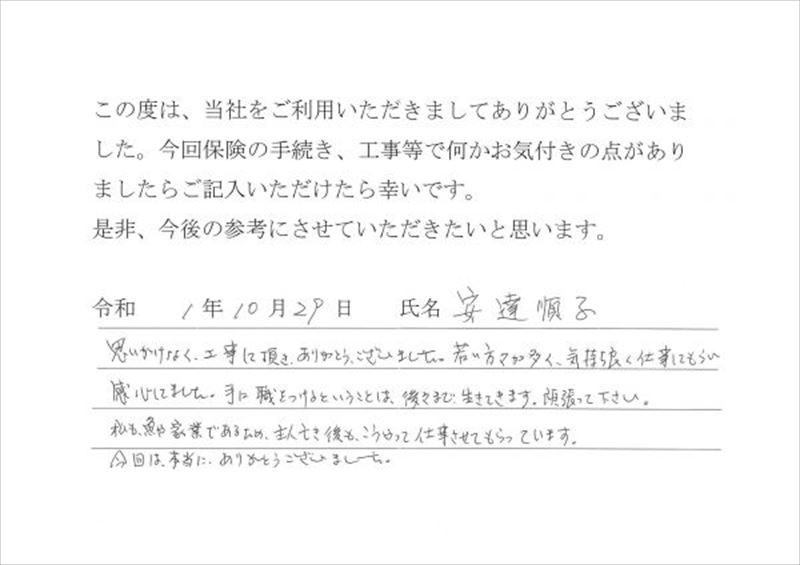 この度は、当社をご利用いただきましてありがとうございま
した。今回保険の手続き、工事等で何かお気付きの点があり
ましたらご記入いただけたら幸いです。
是非、今後の参考にさせていただきたいと思います。
令和 1年10月29日 氏名 安達順子
思いがけなく、工事して頂き、ありがとうございました。若い方々が多く、気持ち良く仕事してもらい
感心しました。手に職をつけるということは、後々まで生きてきます。頑張って下さい。
私も、魚や家業であるため、主人亡き後も、こうやって仕事させてもらっています。
今回は、本当に、ありがとうございました。